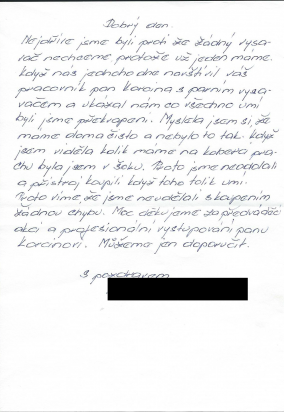 Dobrý den.
Nejdříve jsme byli proti že žádný vysa-
vač nechceme protože už jeden máme.
Když nás jednoho dne navštívil váš
pracovník pan Korcina s parním vysa-
vačem a ukázal nám co všechno umí
byli jsme překvapeni. Myslela jsem si, že
máme doma čisto a nebylo to tak. Když
jsem viděla kolik máme na koberci pra-
chu byla jsem v šoku. Proto jsme neodolali
a přístroj koupili když toho tolik umí.
Proto víme, že jsme neudělali s koupením
žádnou chybu. Moc děkujeme za předváděcí
akci a profesionální vystupování panu
Korcinovi. Můžeme jen doporučit.
S pozdravem